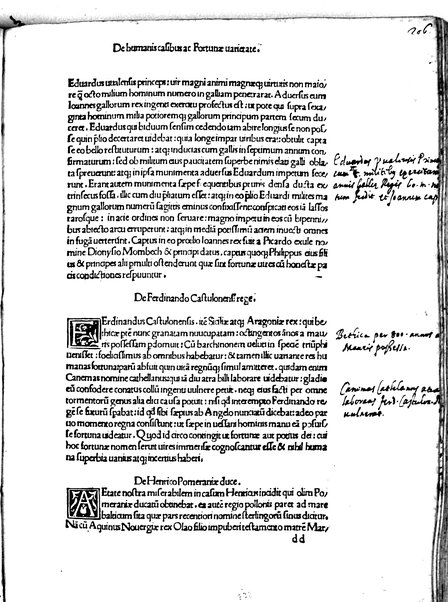 206
De humanis casibus ac Fortunæ uarietate.
Eduardus uualensis princeps: uir magni animi magnæq; uirtutis non maio/
re q̃ octo milium hominum numero in galliam penetrarat. Aduersus eum
Ioannes gallorum rex ingenti exercitu profectus est: ut pote qui supra sexa/
ginta hominum milia potioremq; gallorum principum partem secum du/
ceret. Eduardus qui biduum sensim cedendo iam abire longius se non pos/
se quin prælio decertaret uidebat: quia longe impar uiribus erat: obtulit capta
se eo bello restituturum: atq; inducias cum gallis in septimum annum con/
firmaturum: sed ob militum eius paucitatem superbe nimis elati galli obla/
ta spreuerunt: atq; in ipsa munimenta aduersus Eduardum impetum fece
runt. Erant autem munimenta sæpe frequentibus prunis densa ducta ex/
trinsecus fossa. Sic cum diu
Eduardi milites ma
gnum gallorum numerū sagittis eminus
rarosque: in acie ordines non seruare: magno impetu in eos cū bipenni/
bus abiecto arcu erruperunt: atq; in mediā potissimū aciem inuecti omnes
in fugā uerterūt. Captus in eo prælio Ioannes rex fuit a Picardo exule no/
mine Dionysio Mombech & principi datus, captus quoq; Philippus eius fili
us & principes alii
ostenderunt quæ sint fortunæ uires cū honestæ pa
cis conditiones respuuntur.
Eduardus
milit
De Ferdinando Castulonensi rege.
FErdinandus Castulonensis, itē Siciliæ atq; Aragoniæ rex: qui be/
thicæ
nunc granatam nuucupatam: octingentos ānos a mau
ris possessam
Cū barchinonem ueluti in speciē triūphi
uenisset: fœlicissimus ab omnibus habebatur: & tamen illic uanante res hu
manas fortuna parū abfuit quin uitā regnūq; simul amitteret. quidam enim
Canemas nomine cathellanus quiā diu atra bili laborare uidebatur: gladio
eū confodere conatus colli ingenti uulnere petit. neq; eius facti per omne
tormentorū genus alia elici causa potuit: nisi q̃ interempto Ferdinando re
gē se futurū sperabat: id q̃ sibi sæpius ab Angelo nunciatū dicebat: adeo par
uo momento regna consistunt: ut sæpe in uesani hominis manu eā posuis/
se fortuna uideatur. Quod id circo contingit ut fortunæ aut potius dei: cui
hoc fortunæ nomen ferunt uires immensæ cognoscantur esse & nihil huma
na superbia uanius atq; incertius haberi.
Betica per 800. annos a
Mauris possessa.
Canemas
De Henrico Pomeraniæ duce.
AEtate nostra miserabilem in casum Henricus incidit qui olim Po/
meraniæ ducatū obtinebat, ea autē regio polloniæ paret ad mare
balticum sita quæ pars recentiori nomine sterlingorū sinus dicitur.
Nā cū Aquinus Nouergiæ rex Olao filio impuberi testamento matrē Mar/
dd